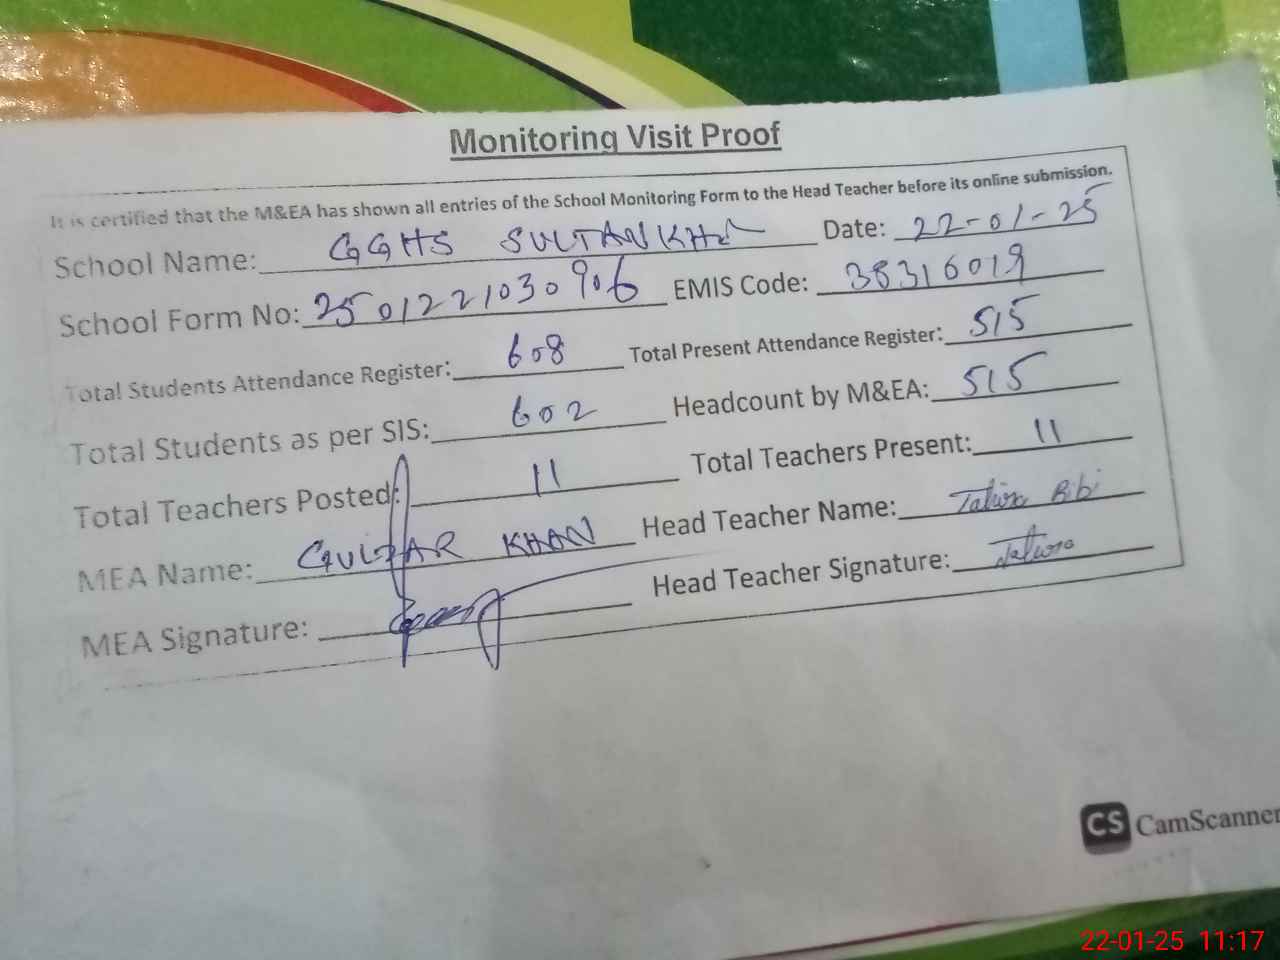 Monitoring Visit Proof
It is certified that the M&EA has shown all entries of the School Monitoring Form to the Head Teacher before its online submission.
School Name: GGHS SULTAN KHEL Date: 22-01-25
School Form No: 2501221030906 EMIS Code: 38316019
Total Students Attendance Register: 608 Total Present Attendance Register: 515
Total Students as per SIS: 602 Headcount by M&EA: 515
Total Teachers Posted: 11 Total Teachers Present: 11
MEA Name: GULZAR KHAN Head Teacher Name: Tahira Bibi
MEA Signature: Head Teacher Signature: Tahira
CS CamScanner
22-01-25 11:17